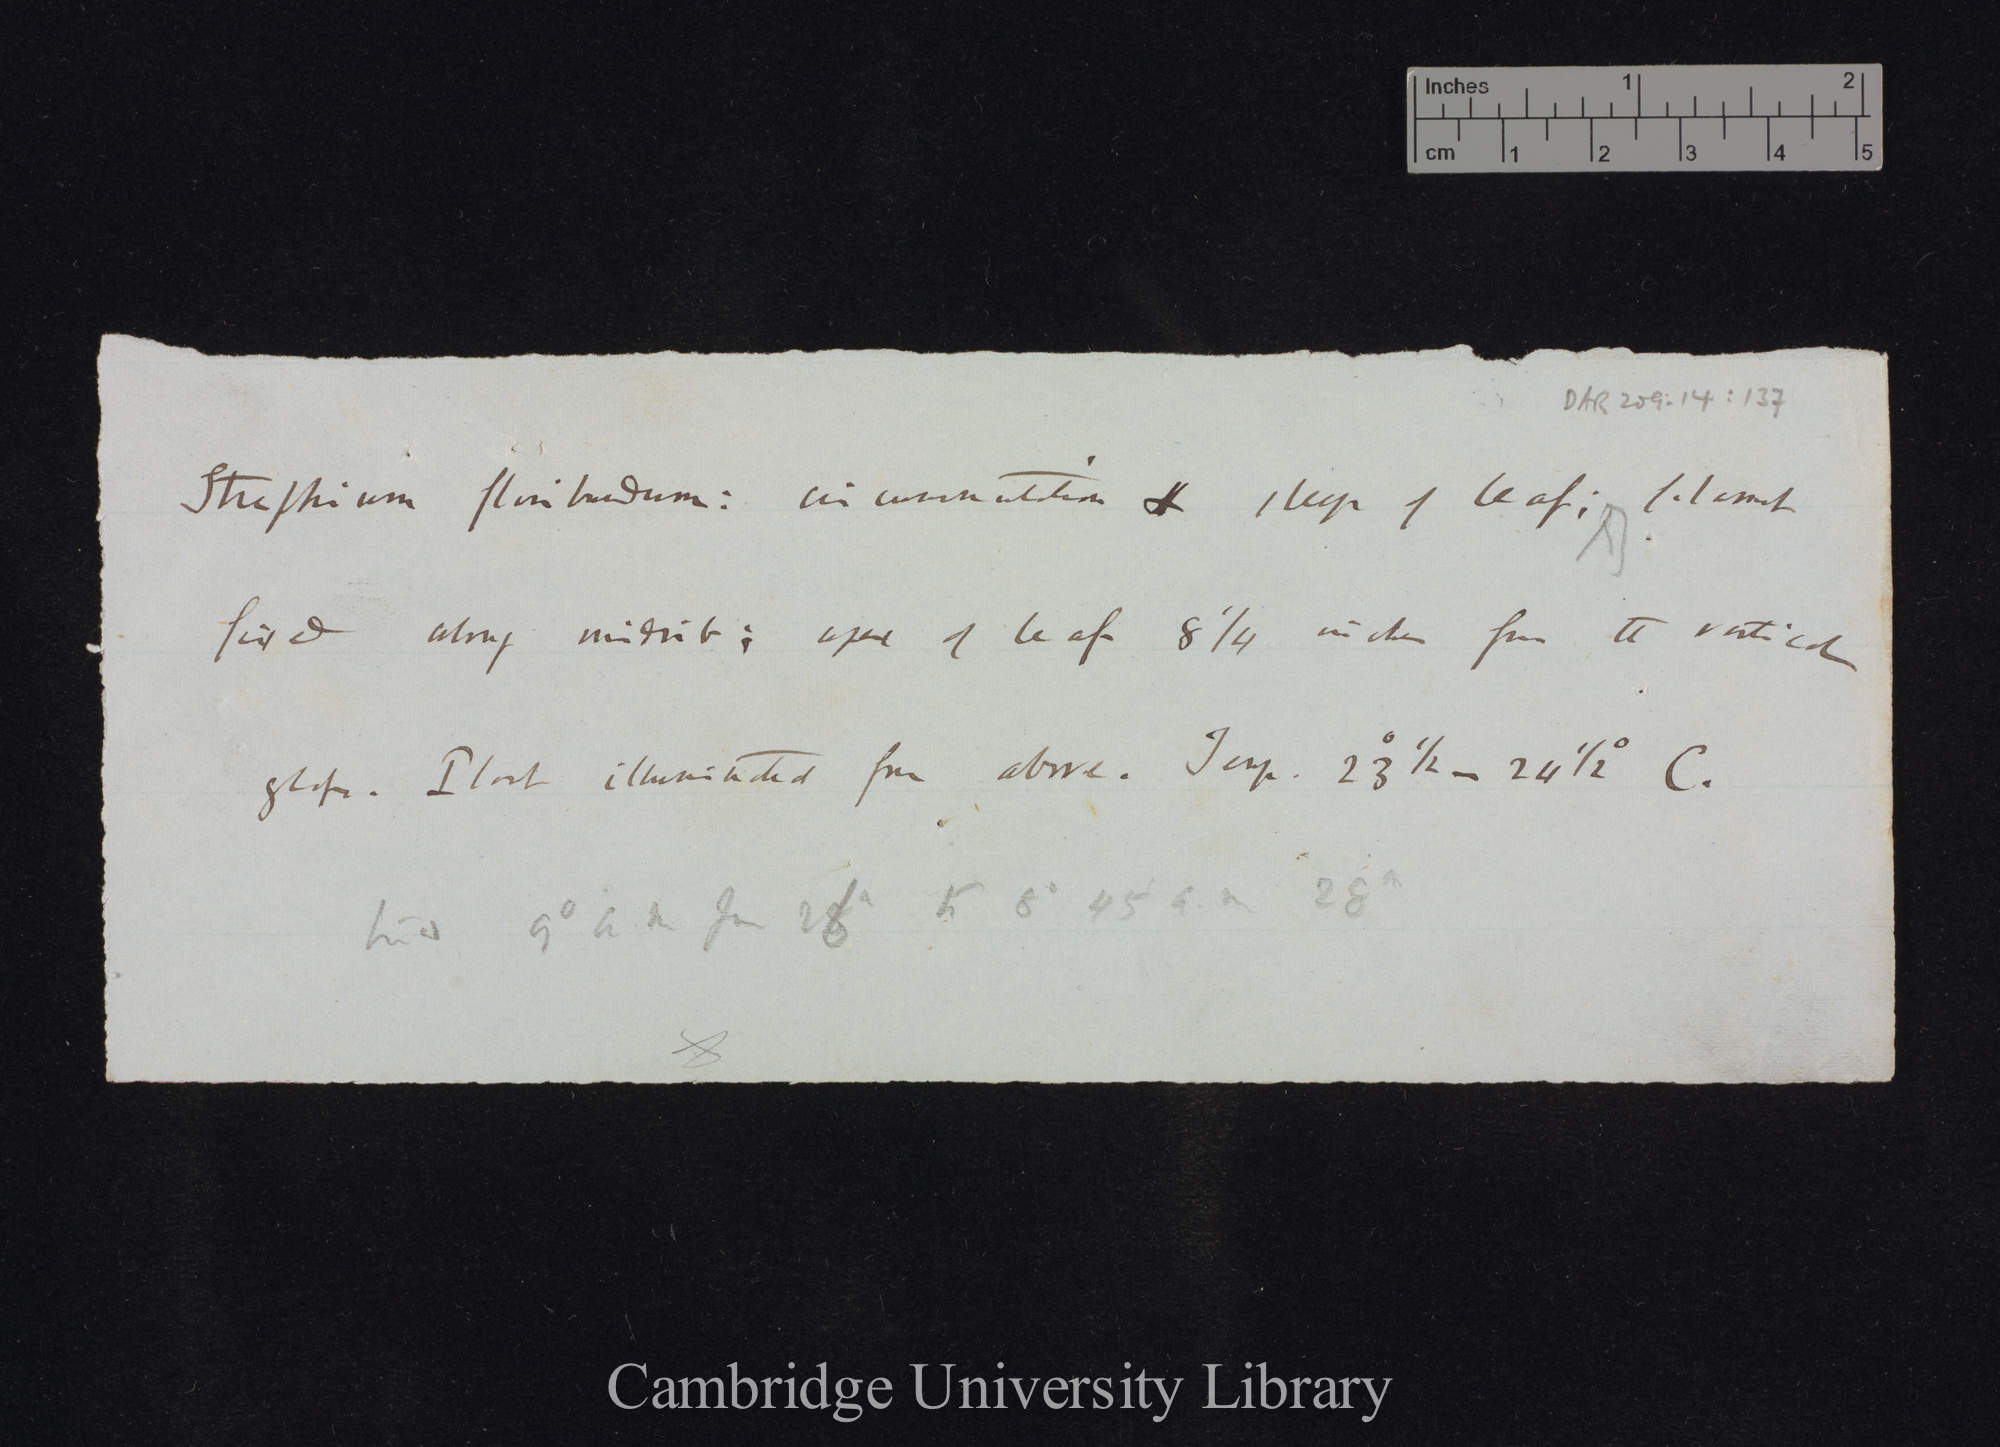 Inches 1 2
cm 1 2 3 4 5
DAR 209.14 : 137
Strephium floribundum: circumnutation & sleep of leaf; filament
fixed along midrib; apex of leaf 8 1/4 inches from the vertical
glass. Plant illuminated from above. Temp. 23° 1/2 – 24 1/2° C.
9° a.m. from 26th to 8° 45' a.m 28th
Cambridge University Library